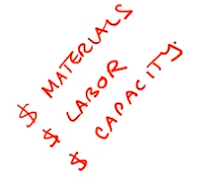 $ MATERIALS
$ LABOR
$ CAPACITY.